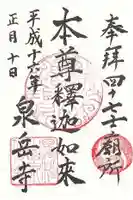 奉拝四十七士廟所
本尊釋迦如來
平成十六年
正月十日
泉岳寺